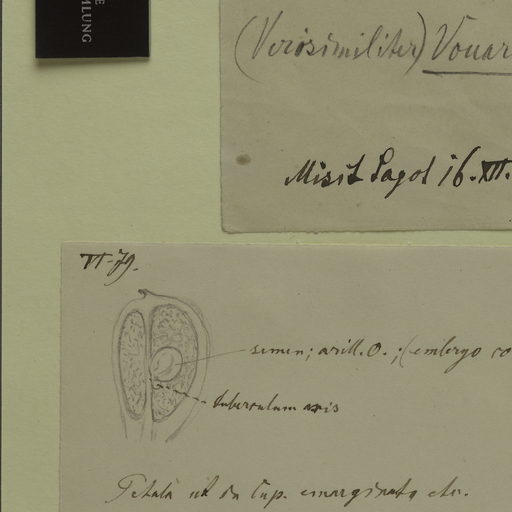 MLUNG
(Verosimiliter) Vouar
Misit Sagot 16. XII.
VI-79.
semen; arill. O. ; (embryo co
tuberculum axis
Petala ut in Cup. emarginata etc.